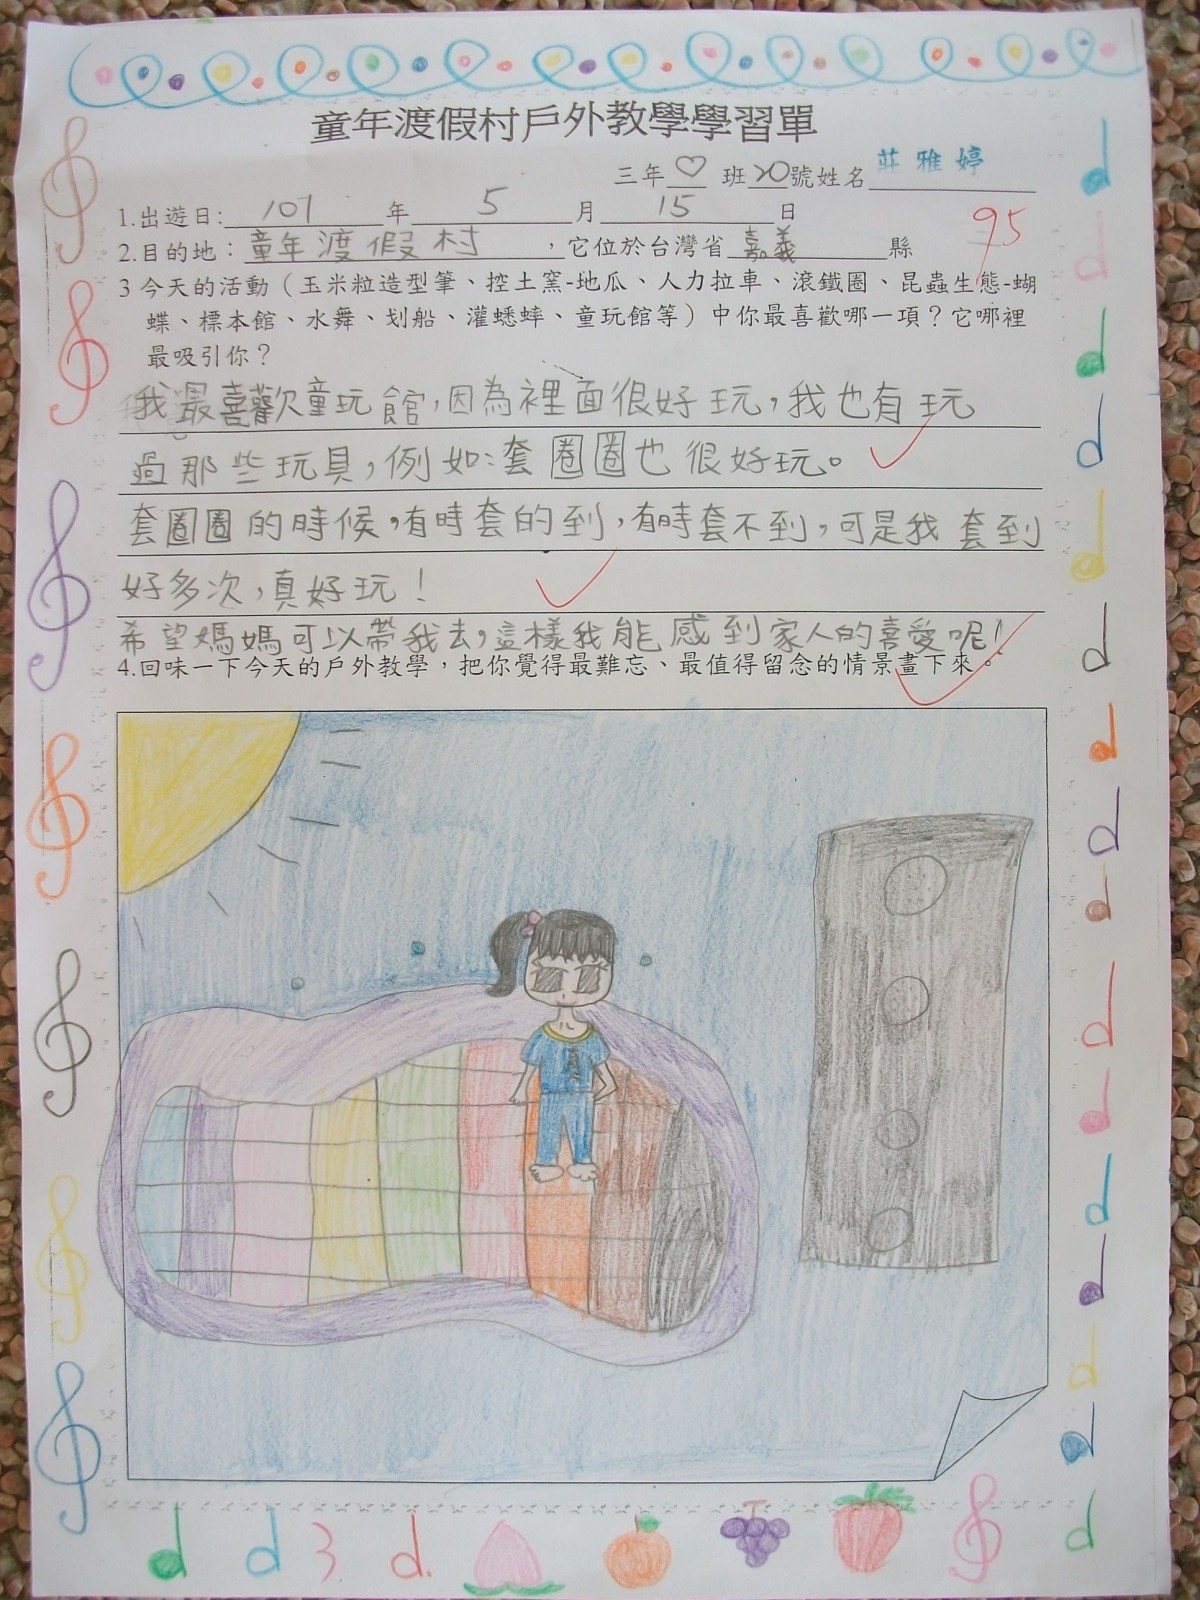 童年渡假村戶外教學學習單
三年♡班20號姓名莊雅婷
1.出遊日:101年5月15日
95
2.目的地：童年渡假村，它位於台灣省嘉義縣
3 今天的活動（玉米粒造型筆、控土窯-地瓜、人力拉車、滾鐵圈、昆蟲生態-蝴
蝶、標本館、水舞、划船、灌蟋蟀、童玩館等）中你最喜歡哪一項？它哪裡
最吸引你？
我最喜歡童玩館,因為裡面很好玩,我也有玩
過那些玩具,例如:套圈圈也很好玩。
套圈圈的時候,有時套的到,有時套不到,可是我套到
好多次,真好玩!
希望媽媽可以帶我去,這樣我能感到家人的喜愛呢!
4.回味一下今天的戶外教學，把你覺得最難忘、最值得留念的情景畫下來。